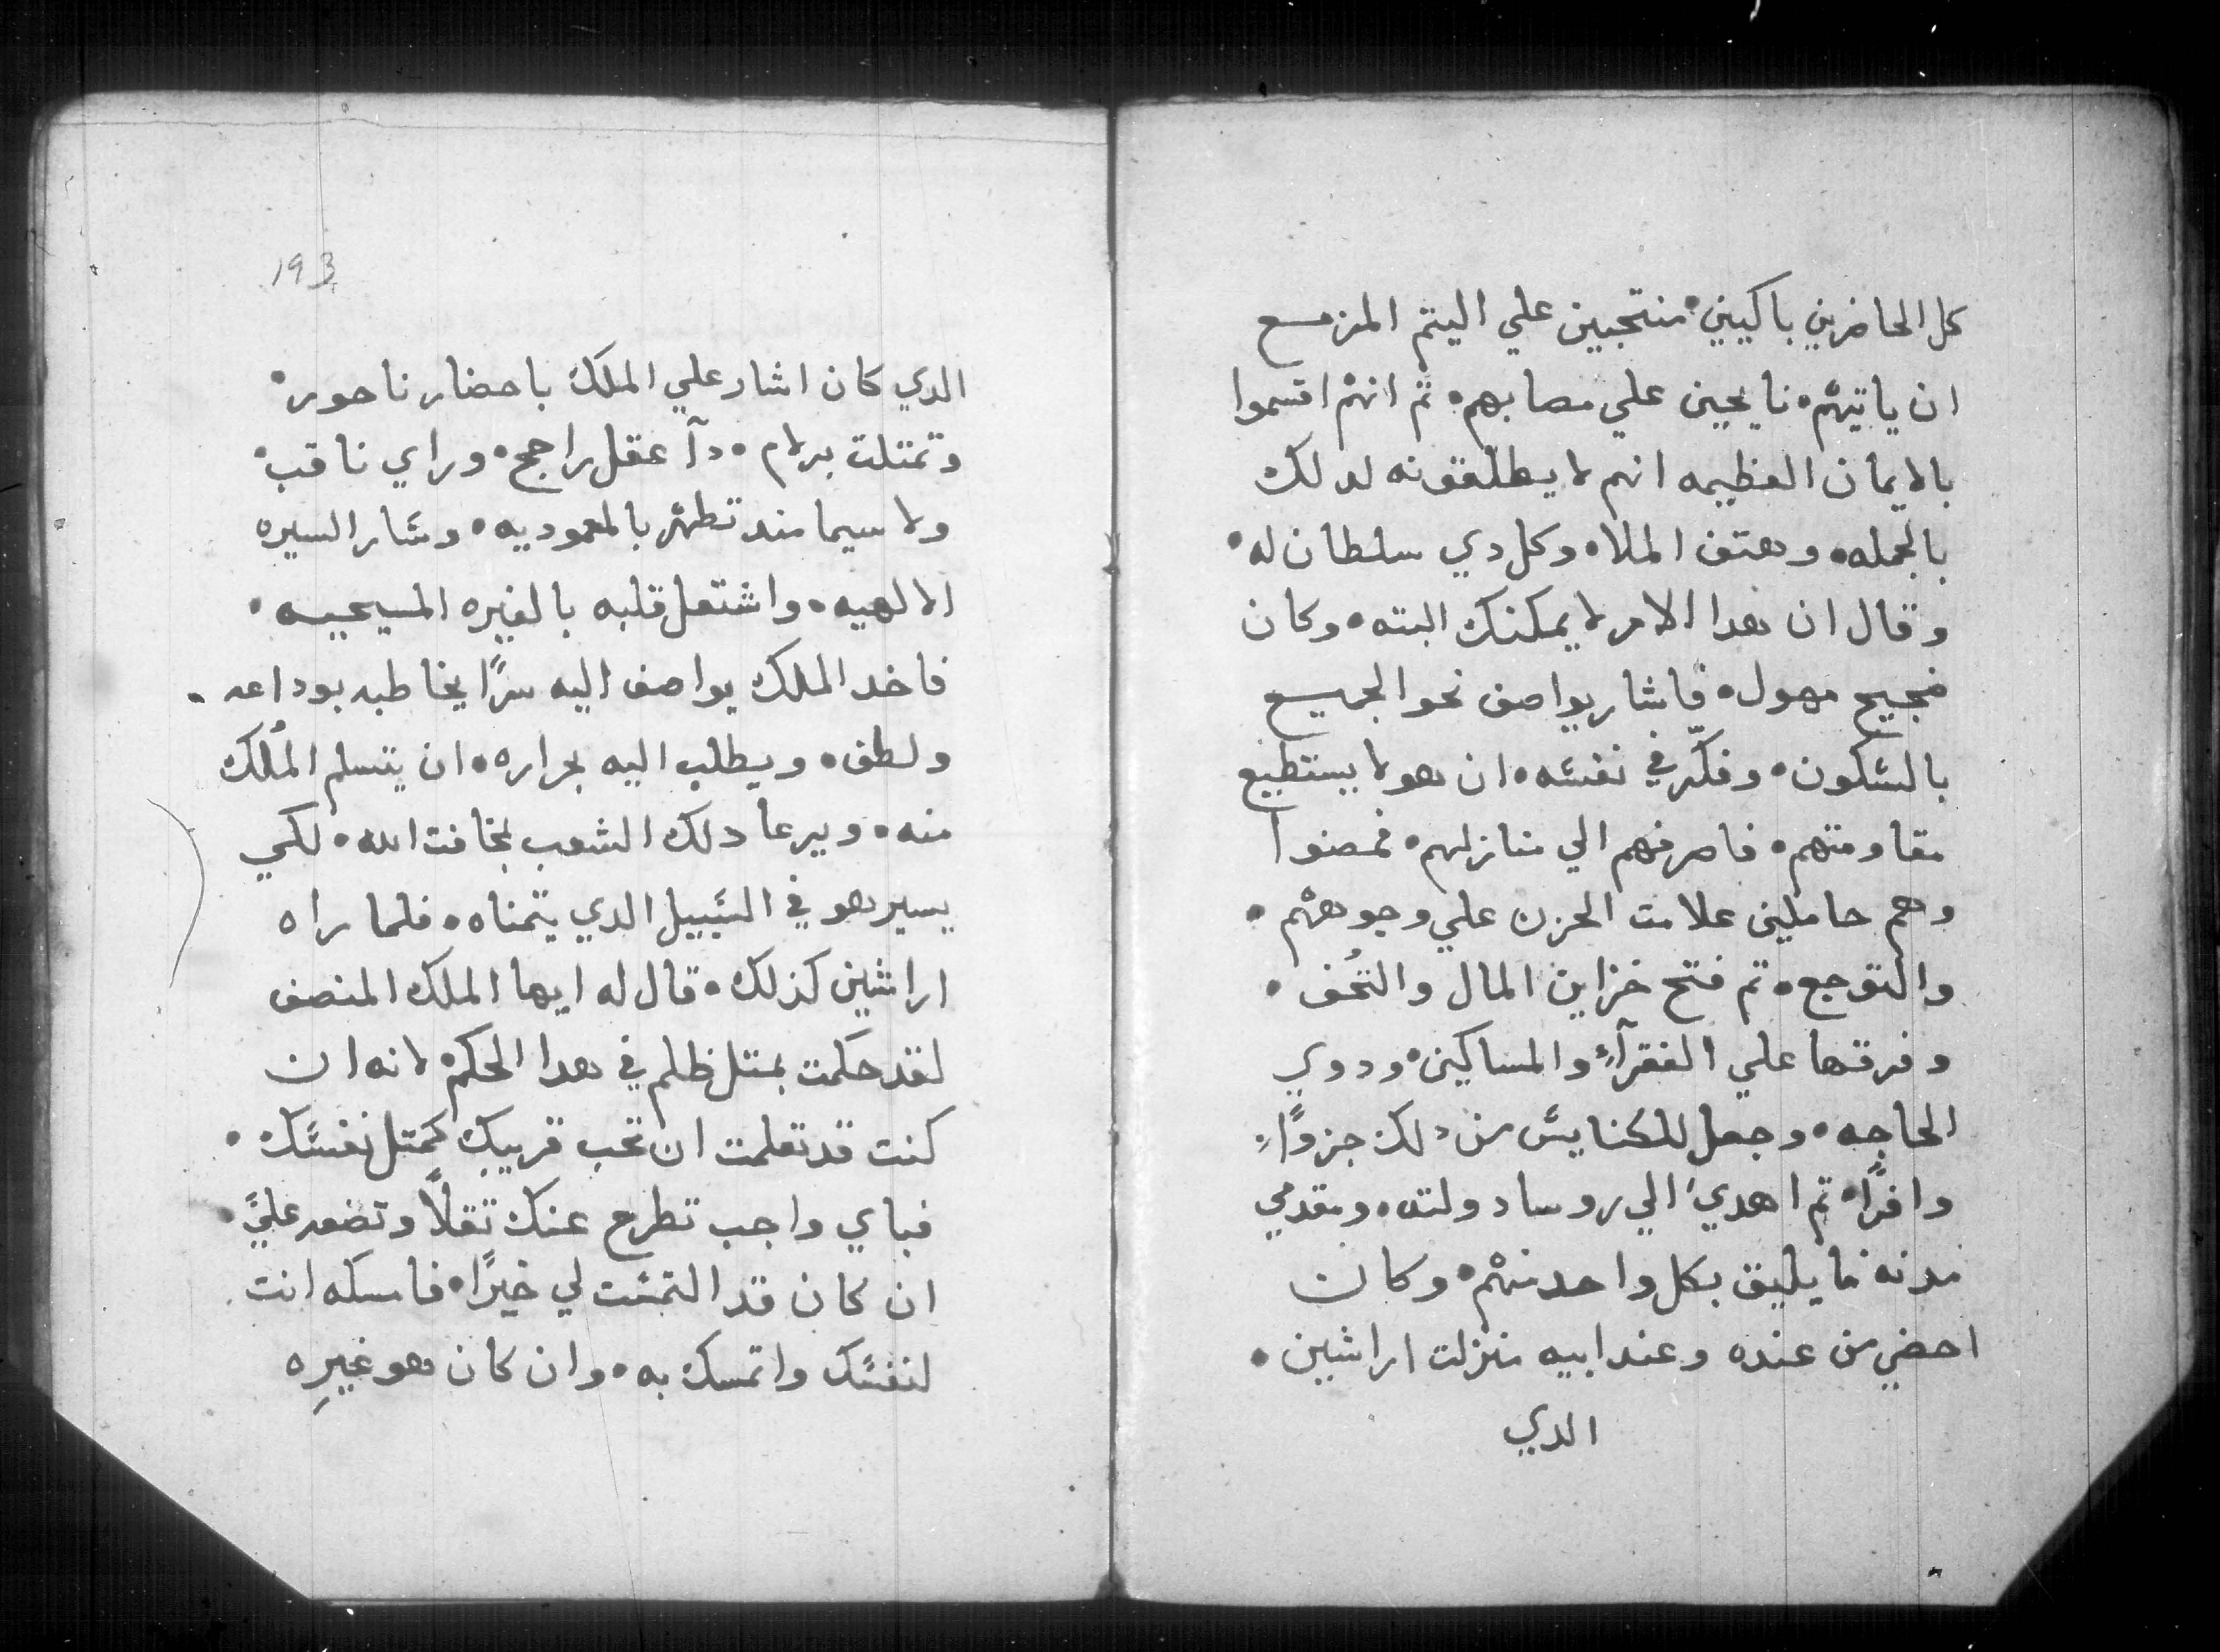 كل الحاضرين باكيين • منتحبين علي اليتم المزمع
ان ياتيهم • نايحين علي مصابهم • تم انهم اقسموا
بالايمان العظيمه انهم لا يطلقونه لدلك
بالجمله • وهتف الملاه وكل دي سلطان له •
وقال ان هدا الامر لا يمكنك البته • وكان
ضجيج مهول • فاشار يواصف نحو الجميع
بالسكون • وفكّر في نفسه • ان هو لا يستطيع
مقاومتهم • فاصرفهم الي منازلهم • فمضوا
وهم حاملين علامت الحزن علي وجوههم •
والتوجع • تم فتح خزاين المال والتُحف •
وفرقها علي الفقرآءِ والمساكين • ودوي
الحاجه • وجعل للكنايس من دلك جزوًاء
وافرًا • تم اهدي الي روسا دولته • ومقدمي
مدنه ما يليق بكل واحد منهم • وكان
احضي من عنده وعند ابيه منزلت اراشين •
الدي
193
الدي كان اشار علي الملك باحضار ناحور •
وتمتلت برلام • دآ عقل راجح • وراي تاقب •
ولا سيما مند تطهر بالمعموديه • وسار السيره
الالهيه • واشتعل قلبه بالغيره المسيحييه •
فاخد الملك يواصف اليه سرًا يخاطبه بوداعه •
ولطف • ويطلب اليه بحراره • ان يتسلم المُلك
منه • ويرعا دلك الشعب بخافت الله • لكي
يسير هو في السبيل الدي يتمناه • فلما راه
اراشين كذلك • قال له ايها الملك المنصف
لقد حكمت بمتل ظلم في هدا الحكم • لانه ان
كنت قد تعلمت ان تحب قريبك كمتل نفسك •
فباي واجب تطرح عنك تقلًا وتضعه عليَّ •
ان كان قد التمست لي خيرًا • فامسكه انت
لنفسك واتمسك به • وان كان هو غيرِه